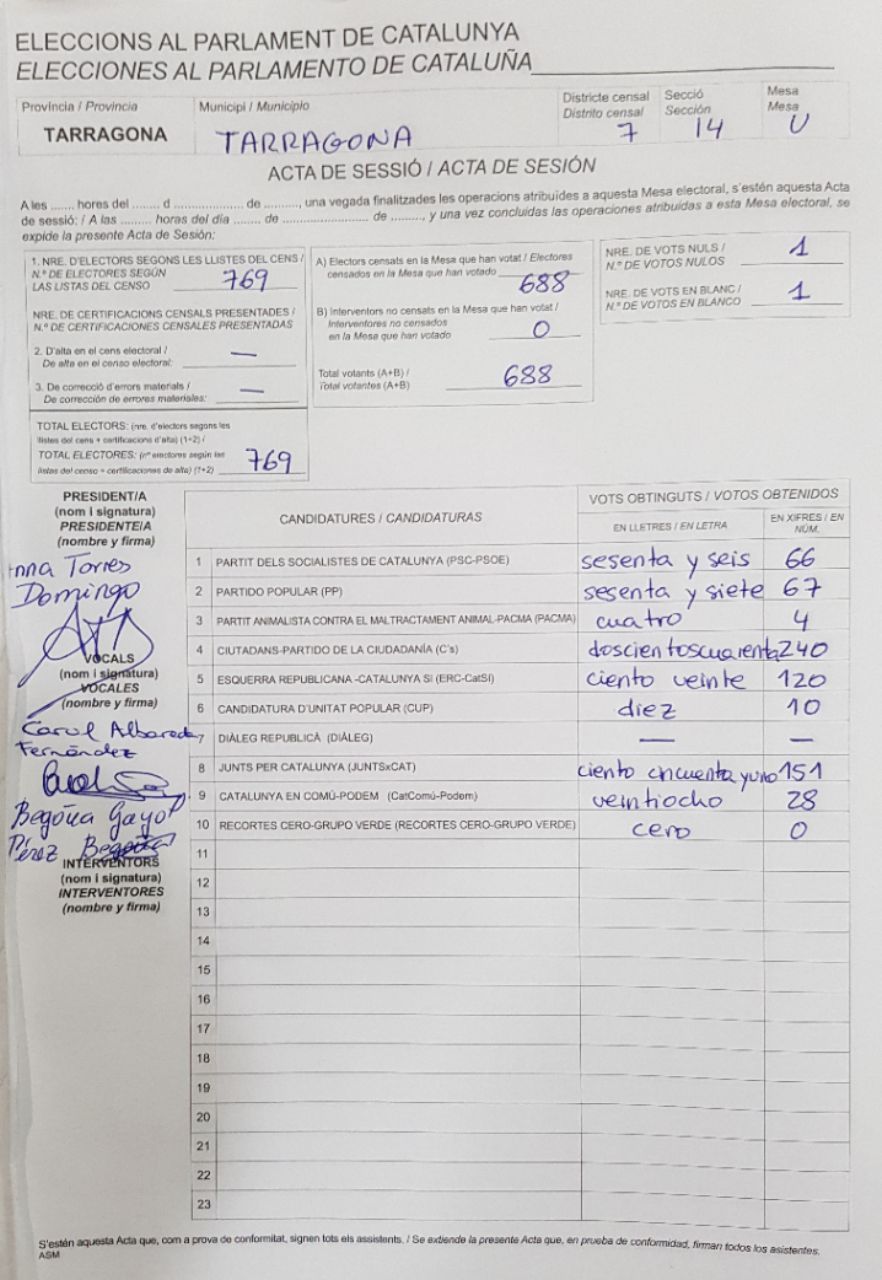 ELECCIONS AL PARLAMENT DE CATALUNYA
ELECCIONES AL PARLAMENTO DE CATALUÑA
Província / Provincia
TARRAGONA
Municipi / Municipio
TARRAGONA
Districte censal
Distrito censal
7
Secció
Sección
14
Mesa
Mesa
U
ACTA DE SESSIÓ / ACTA DE SESIÓN
A les ....... hores del ........ d .................... de .........., una vegada finalitzades les operacions atribuïdes a aquesta Mesa electoral, s'estén aquesta Acta
de sessió: / A las ......... horas del día ........ de ......................... de ........., y una vez concluidas las operaciones atribuidas a esta Mesa electoral, se
expide la presente Acta de Sesión:
1. NRE. D'ELECTORS SEGONS LES LLISTES DEL CENS /
N.º DE ELECTORES SEGÚN
LAS LISTAS DEL CENSO
769
NRE. DE CERTIFICACIONS CENSALS PRESENTADES /
N.º DE CERTIFICACIONES CENSALES PRESENTADAS
2. D'alta en el cens electoral /
De alta en el censo electoral:
—
3. De correcció d'errors materials /
De corrección de errores materiales:
—
TOTAL ELECTORS: (nre. d'electors segons les
llistes del cens + certificacions d'alta) (1+2) /
TOTAL ELECTORES: (nº electores según las
listas del censo + certificaciones de alta) (1+2)
769
A) Electors censats en la Mesa que han votat / Electores
censados en la Mesa que han votado
688
B) Interventors no censats en la Mesa que han votat /
Interventores no censados
en la Mesa que han votado
0
Total votants (A+B) /
Total votantes (A+B)
688
NRE. DE VOTS NULS /
N.º DE VOTOS NULOS
1
NRE. DE VOTS EN BLANC /
N.º DE VOTOS EN BLANCO
1
PRESIDENT/A
(nom i signatura)
PRESIDENTE/A
(nombre y firma)
Anna Torres
Domingo
VOCALS
(nom i signatura)
VOCALES
(nombre y firma)
Carol Albareda
Fernández
Begoña Gayol
Pérez Begoña
INTERVENTORS
(nom i signatura)
INTERVENTORES
(nombre y firma)
CANDIDATURES / CANDIDATURAS
VOTS OBTINGUTS / VOTOS OBTENIDOS
EN LLETRES / EN LETRA
EN XIFRES / EN
NÚM.
1 PARTIT DELS SOCIALISTES DE CATALUNYA (PSC-PSOE) sesenta y seis 66
2 PARTIDO POPULAR (PP) sesenta y siete 67
3 PARTIT ANIMALISTA CONTRA EL MALTRACTAMENT ANIMAL-PACMA (PACMA) cuatro 4
4 CIUTADANS-PARTIDO DE LA CIUDADANÍA (C's) doscientoscuarenta 240
5 ESQUERRA REPUBLICANA -CATALUNYA SÍ (ERC-CatSí) ciento veinte 120
6 CANDIDATURA D'UNITAT POPULAR (CUP) diez 10
7 DIÀLEG REPUBLICÀ (DIÀLEG) — —
8 JUNTS PER CATALUNYA (JUNTSxCAT) ciento cncuenta yuno 151
9 CATALUNYA EN COMÚ-PODEM (CatComú-Podem) veintiocho 28
10 RECORTES CERO-GRUPO VERDE (RECORTES CERO-GRUPO VERDE) cero 0
11
12
13
14
15
16
17
18
19
20
21
22
23
S'estén aquesta Acta que, com a prova de conformitat, signen tots els assistents. / Se extiende la presente Acta que, en prueba de conformidad, firman todos los asistentes.
ASM